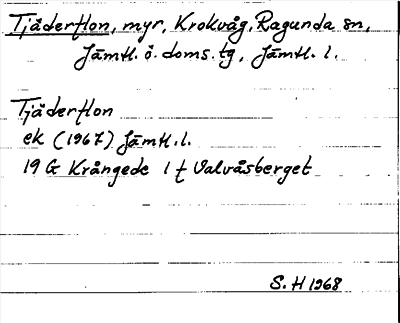 Tjäderflon, myr, Krokvåg, Ragunda sn,
Jämtl. ö. doms. tg, Jämtl. l.
Tjäderflon
ek (1967) Jämtl. l.
19 G Krångede 1 f Valvåsberget
S. H 1968